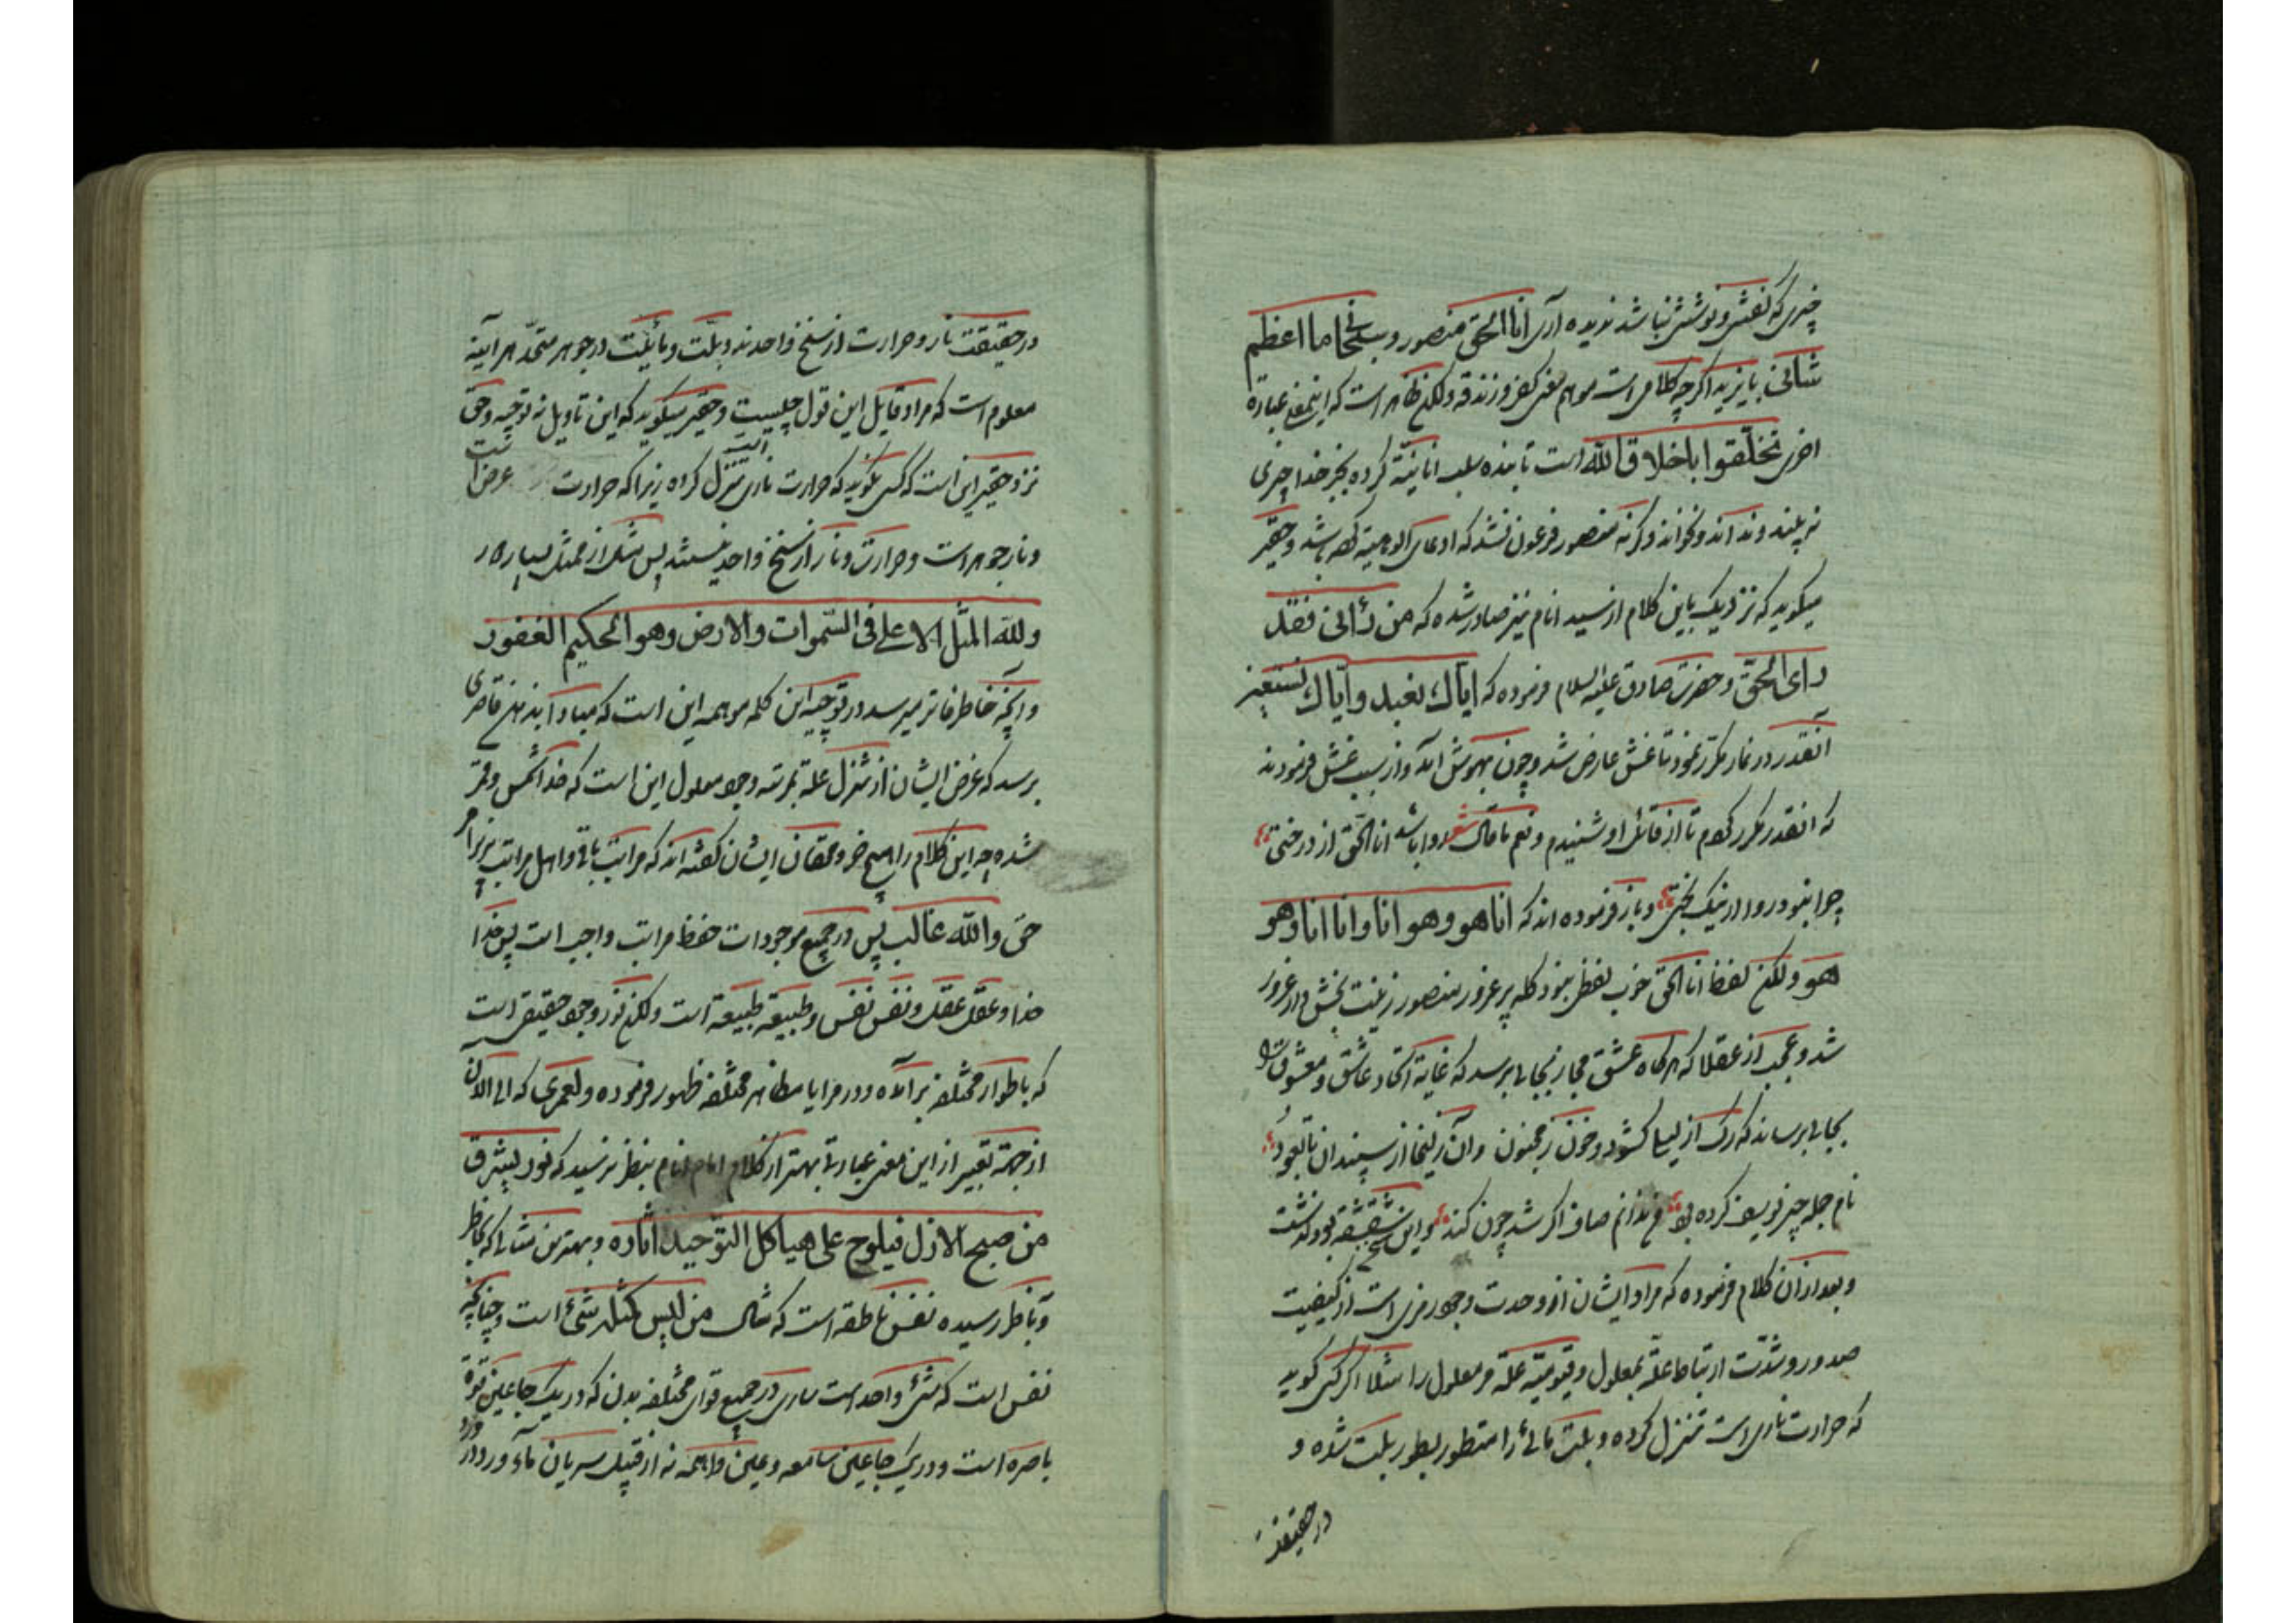 چیزی که نقش و نوشش نباشد ندیده آری انا الحق منصور و سبحانی ما اعظم
شانی بایزید اگرچه کلامی است موهم معنی کفر و زندقه ولکن ظاهر است که اینمعنی عبارة
اخری تخلقوا باخلاق الله است تا بنده سلب انانیّة کرده بجز خدا چیزی
نه بیند و نداند و نخواند وگرنه منصور فرعون نشد که ادعای الوهیة کرده باشد و حقیر
میگوید که نزدیک باین کلام از سید انام نیز صادر شده که من رأنی فقد
رای الحق و حضرت صادق علیه السلام فرموده که ایاك نعبد و ایاك نستعین
آنقدر در نماز مکرر نمود تا غش عارض شد و چون بهوش آمد و از سبب غش فرمودند
که انقدر مکرر کردم تا از قائل او شنیدم و نعم ما قال شعر روا باشد انا الحق از درختی
چرا نبود روا از نیک بختی و باز فرموده اند که انا هو و هو انا و انا انا و هو
هو ولکن لفظ انا الحق خوب لفظی بود کله پر غرور منصور زینت بخش دار غرور
شد و عجب از عقلا که هرگاه عشق مجاز بجایی برسد که غایة اتحاد عاشق و معشوق را
بجایی برساند که رک از لیلی کشود و خون ز مجنون وآن زلیخا از سپندان تا بعود
نام جمله چیز یوسف کرده بود من ندانم صاف اگر شد چون کند و این شقشقة بود گذشت
و بعد از آن کلام فرموده که مراد ایشان از وحدت وجود رمزی است از کیفیت
صدور و شدّت ارتباط علّة بمعلول و قیومیّة علّة مر معلول را مثلا اگر کسی گوید
که حرارت ناری است تنزل کرده و بلّت مائی را متطور بطور بلّت شده و
در حقیقة
در حقیقت نار و حرارت از سنخ واحدند و بلّت و مائیّت در جوهر متحد هر آینه
معلوم است که مراد قایل این قول چیست و حقیر میگوید که این تاویل نه توجیه وحق
نزد حقیر این است که کسی بگوید که حرارت ناری است تنزل کرده زیرا که حرارت عرض است
و نار جوهر است و حرارت و نار از سنخ واحد نیستند پس مثل از ممثل بسیار دور
ولله المثل الاعلی فی السموات والارض وهو الحکیم الغفور
و آنچه بخاطر فاتر میرسد در توجیه این کلمه موهمه این است که مبادا بذهن قاصری
برسد که غرض ایشان از تنزل علة بمرتبه وجود معلول این است که خدا شمس و قمر
شده چه این کلام را هیچ خر و محققان ایشان گفته اند که مراتب باقی و اهل مراتب زیر امر
حق والله غالب پس در جمیع موجودات حفظ مراتب واجب است پس خدا
خدا و عقل عقل و نفس نفس و طبیعة طبیعة است ولکن نور وجود حقیقی است
که باطوار مختلفه برآمده و در مرایا مظاهر مختلفه ظهور فرموده ولعمری که الی الان
از جهة تعبیر از این معنی عبارتی بهتر از کلام امام انام بنظر نرسید که نور یشرق
من صبح الازل فیلوح علی هیاکل التوحید اثاره و بهترین مثالی که بخاطر
فاتر رسیده نفس ناطقه است که مثال من لیس کمثله شئ است و چنانچه
نفس است که شئ واحد است ساری در جمیع قوای مختلفه بدن که در یک جا عین قوة
باصره است و در یک جا عین سامعه و عین واهمه نه از قبیل سریان ماء ورد در ورد